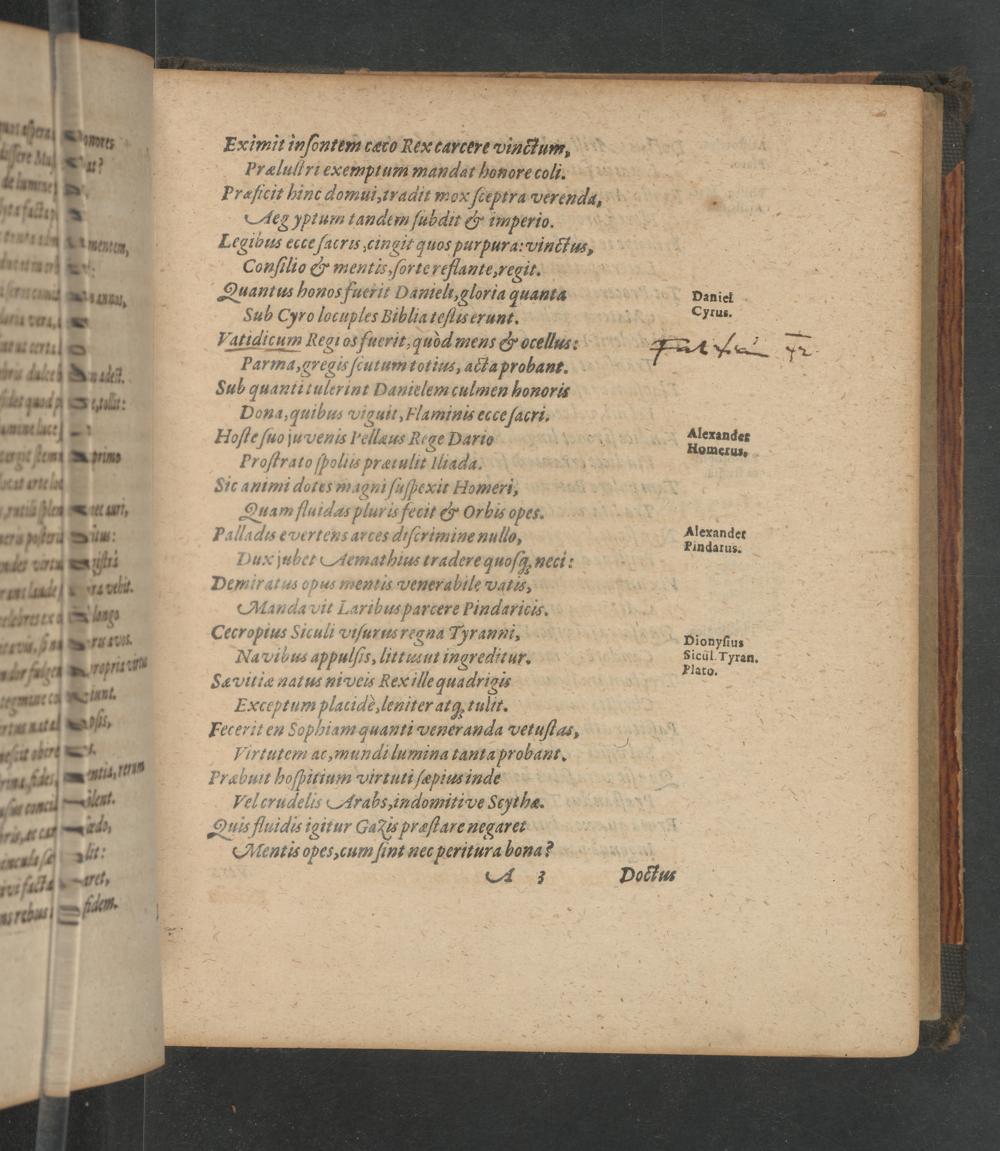 Eximit insontem cæco Rex carcere vinctum,
Prælustri exemptum mandat honore coli.
Præficit hinc domui, tradit mox sceptra verenda,
Aegyptum tandem subdit & imperio.
Legibus ecce sacris, cingit quos purpura: vinctus,
Consilio & mentis, sorte reflante, regit.
Quantus honos fuerit Danieli, gloria quanta
Daniel
Sub Cyro locuples Biblia testis erunt.
Cyrus.
Vatidicum Regi os fuerit, quòd mens & ocellus:
Parma, gregis scutum totius, acta probant.
Sub quanti tulerint Danielem culmen honoris
Dona, quibus viguit, Flaminis ecce sacri.
Hoste suo juvenis Pellæus Rege Dario
Alexander
Prostrato spoliis prætulit Iliada.
Homerus.
Sic animi dotes magni suspexit Homeri,
Quam fluidas pluris fecit & Orbis opes.
Palladis evertens arces discrimine nullo,
Alexander
Pindarus.
Dux jubet Aemathius tradere quosq; neci:
Demiratus opus mentis venerabile vatis,
Mandavit Laribus parcere Pindaricis.
Cecropius Siculi visurus regna Tyranni,
Dionysius
Navibus appulsis, littus ut ingreditur.
Sicul. Tyran.
Plato.
Sævitiæ natus niveis Rex ille quadrigis
Exceptum placidè, leniter atq; tulit.
Fecerit en Sophiam quanti veneranda vetustas,
Virtutem ac, mundi lumina tanta probant.
Præbuit hospitium virtuti sæpius inde
Vel crudelis Arabs, indomitive Scythæ.
Quis fluidis igitur Gazis præstare negaret
Mentis opes, cum sint nec peritura bona?
A 3
Doctus